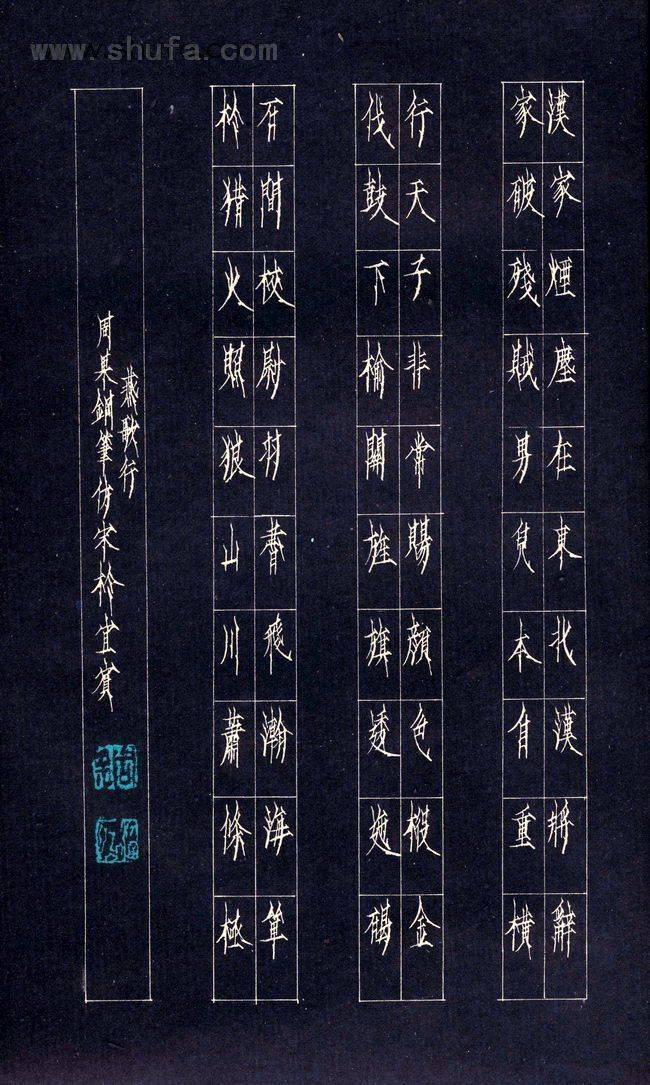 www.shufa.com
漢家煙塵在東北漢將辭
家破殘賊男兒本自重橫
行天子非常賜顏色金
伐鼓下榆關旌旗逶迤碣
石間校尉羽書飛瀚海單
於獵火照狼山川蕭條極
燕歌行
周果鋼筆仿宋於宜賓